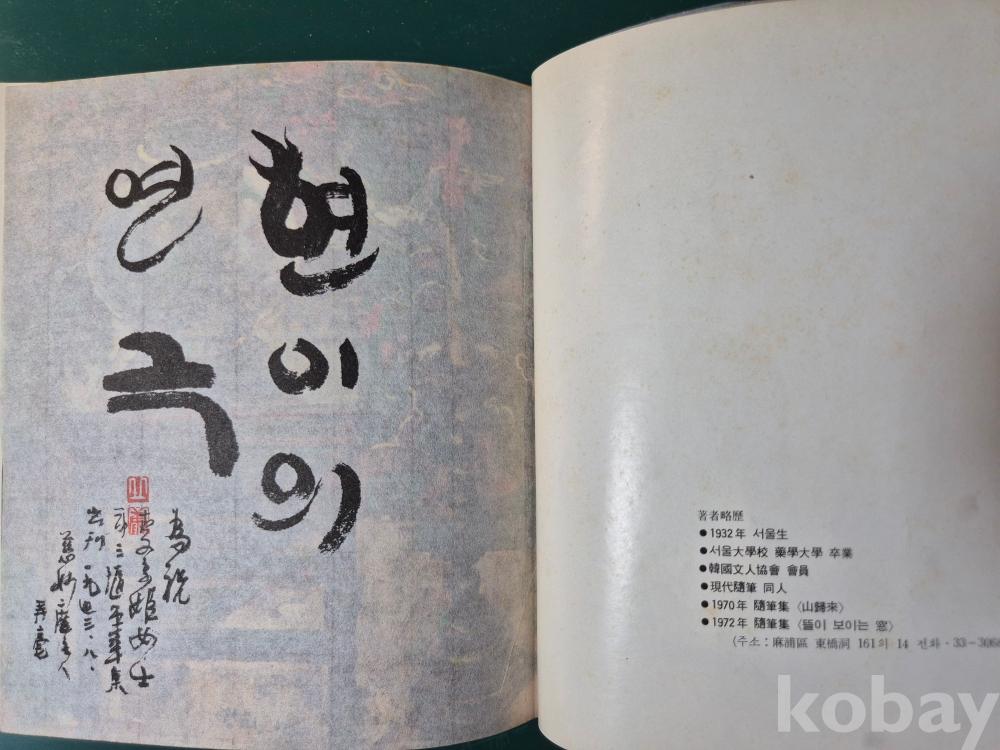 현이의
연극
為祝
女士
第三隨筆集
出刊 一九七三、八、
主人
弄毫
著者略歷
● 1932年 서울生
● 서울大學校 藥學大學 卒業
● 韓國文人協會 會員
● 現代隨筆 同人
● 1970年 隨筆集 〈山歸來〉
● 1972年 隨筆集 〈뜰이 보이는 窓〉
(주소 : 麻浦區 東橋洞 161의 14 전화·33-306
kobay